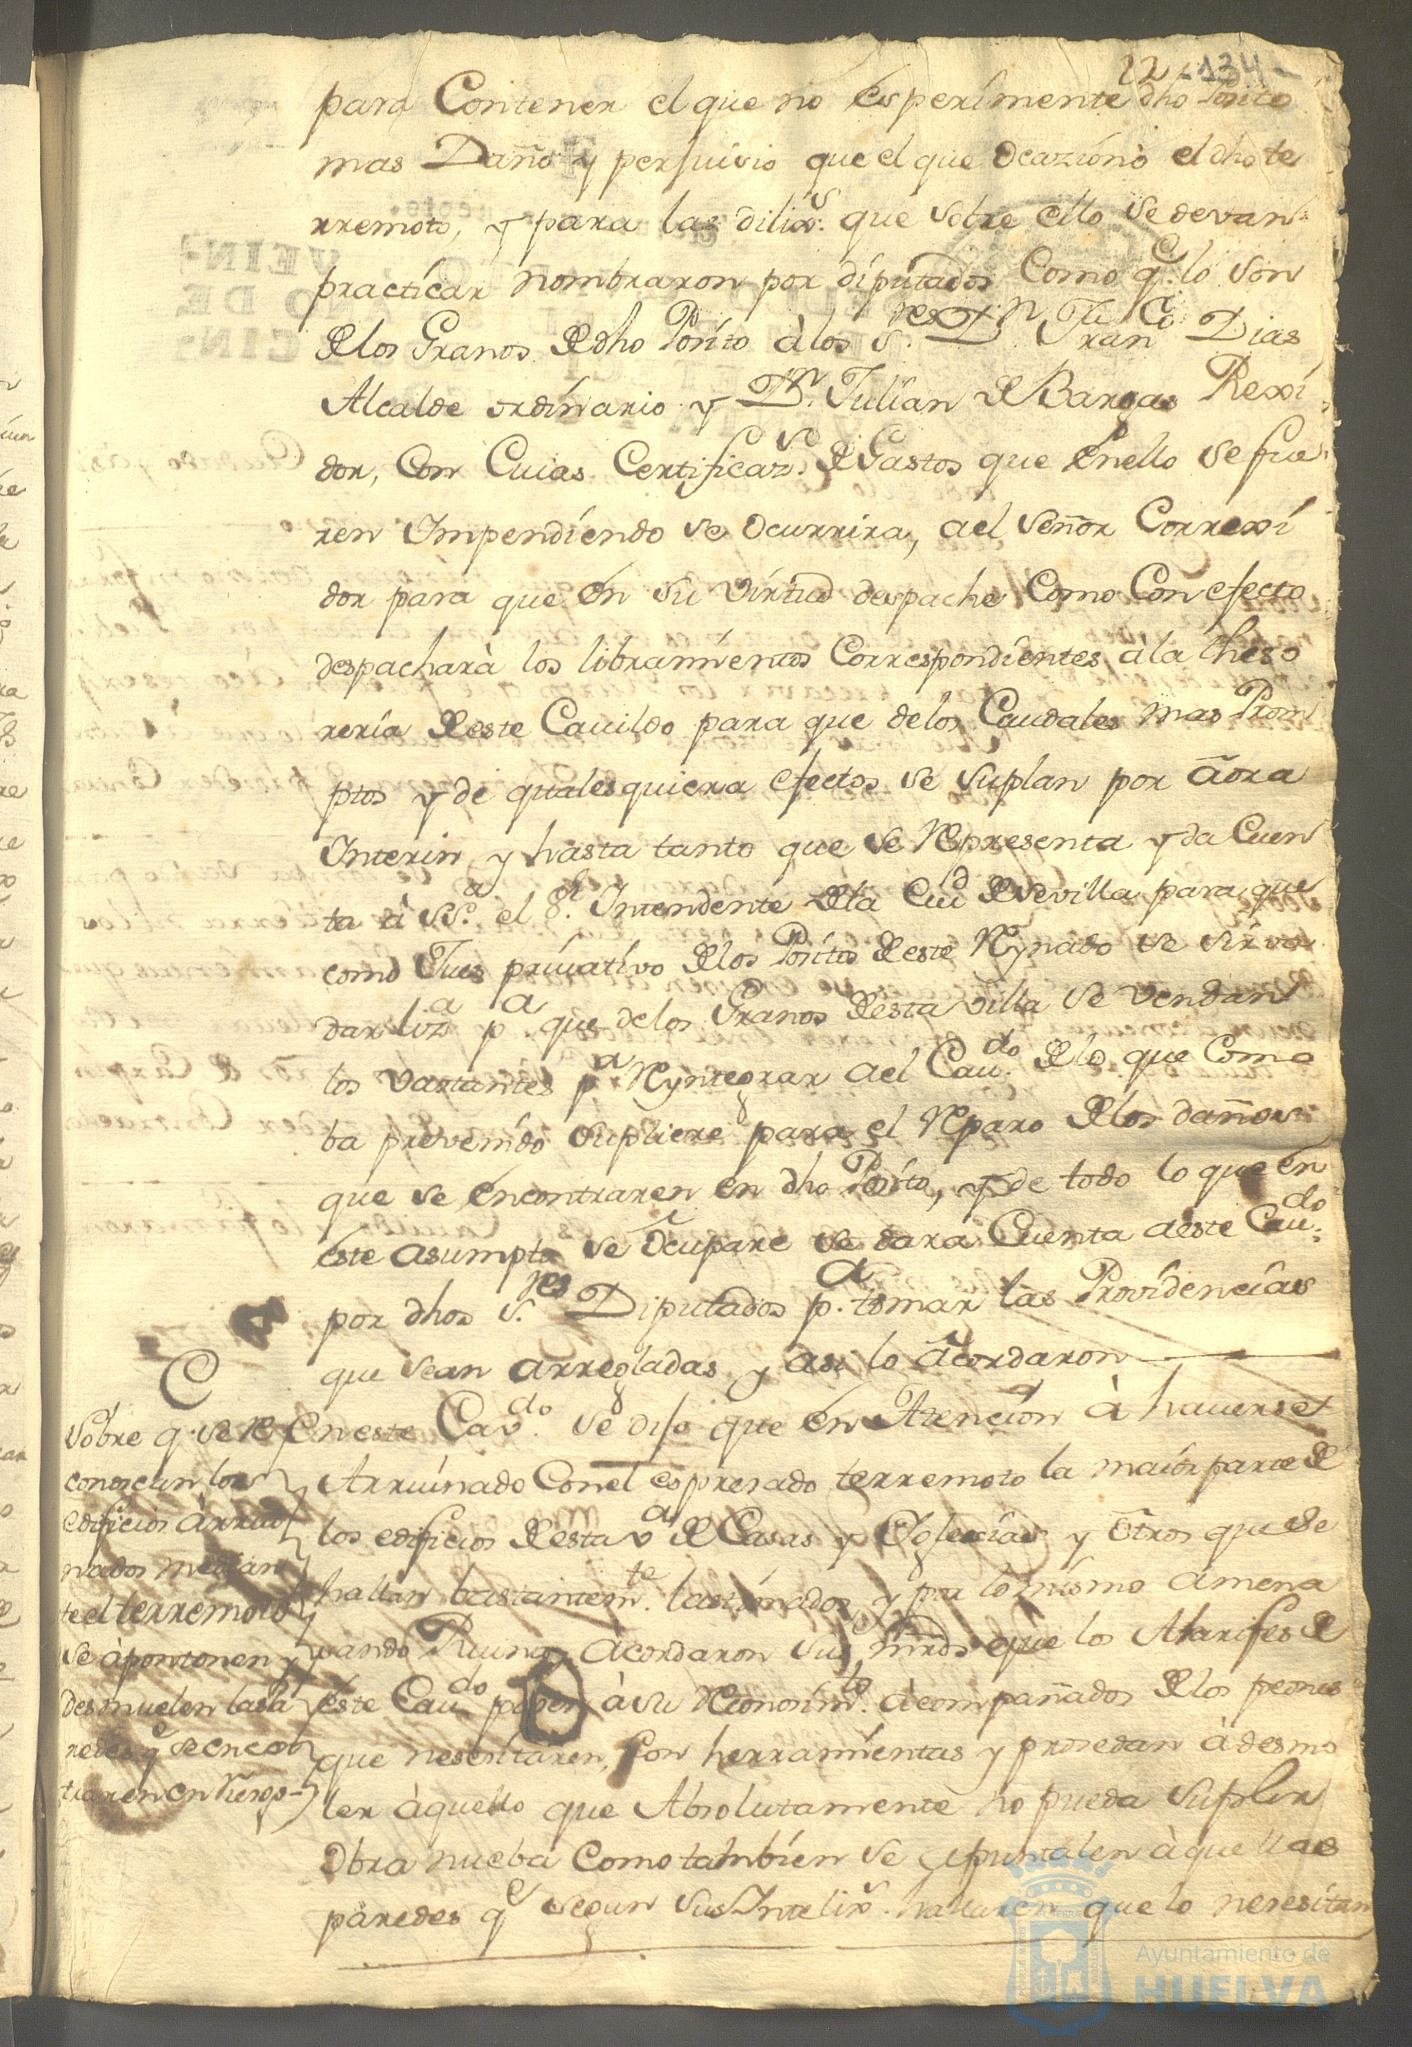 22 - 134 -
para Contener el que no esperimente dho Posito
mas Daño y perjuicio que el que ocazionò el dho te
rremoto, y para las dilixs. que sobre ello se devan
practicar nombraron por diputados como qe. lo son
de los Granos de dho Posito à los Sres. Dn. Franco Dias
Alcalde ordinario y Dn. Julian de Bargas Rexi
dor, Con Cuias Certificazs. de Gastos que en ello se fue
ren Impendiendo se ocurrira, ael Señor Correxi
dor para que en su virtud despache Como Con efecto
despacharà los libramientos correspondientes a la theso
reria de este Cavildo para que de los Caudales mas Prom
ptos y de qualesquiera efectos se suplan por aora
Interin y hasta tanto que se Representa y da Cuen
ta à SSa. el Sr. Intendente de la Ciud de Sevilla para que
como Jues privativo de los Positos de este Reynado se sirva
dar liza pa que de los Granos de esta villa se vendan
los vastantes pa Reyntegrar ael Cavdo. de lo que como
ba prevenido supliere para el Reparo de los daños
que se encontraren en dho Posito, y de todo lo que en
este asumpto se ocupare se dara Cuenta a este Cavdo.
por dhos Sres. Diputados pa. tomar las Providencias
que sean arregladas y asi lo acordaron
En este Cavdo. se dijo que en Atencion à haverse
Arruinado Con el espresado terremoto la maior parte de
los edificios de esta va de Casas y Yglesias y otros que se
hallan bastantemte. lastimados y por lo mismo amena
sando Ruyna, acordaron sus mrds que los Alarifes de
este Cavdo pasen à su Reconosimto. acompañados de los peones
que nesesitaren, con herramientas y prosedan à desmo
ler àquello que Absolutamente no pueda suplir
Obra nueba como tambien se apuntalen àquellas
paredes qe segun sus Intelixs. hallaren que lo nesesitan
C
Sobre q. se re
conoscan los
edificios àrrui
nados median
te el terremoto
se àpontonen y
desmuelen las pa
redes qe se encon
traren en Riesgo
Ayuntamiento de
HUELVA